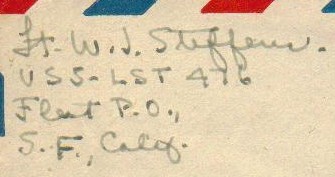 Lt. W. J. Steffens.
USS-LST 476
Fleet P.O.,
S.F., Calif.